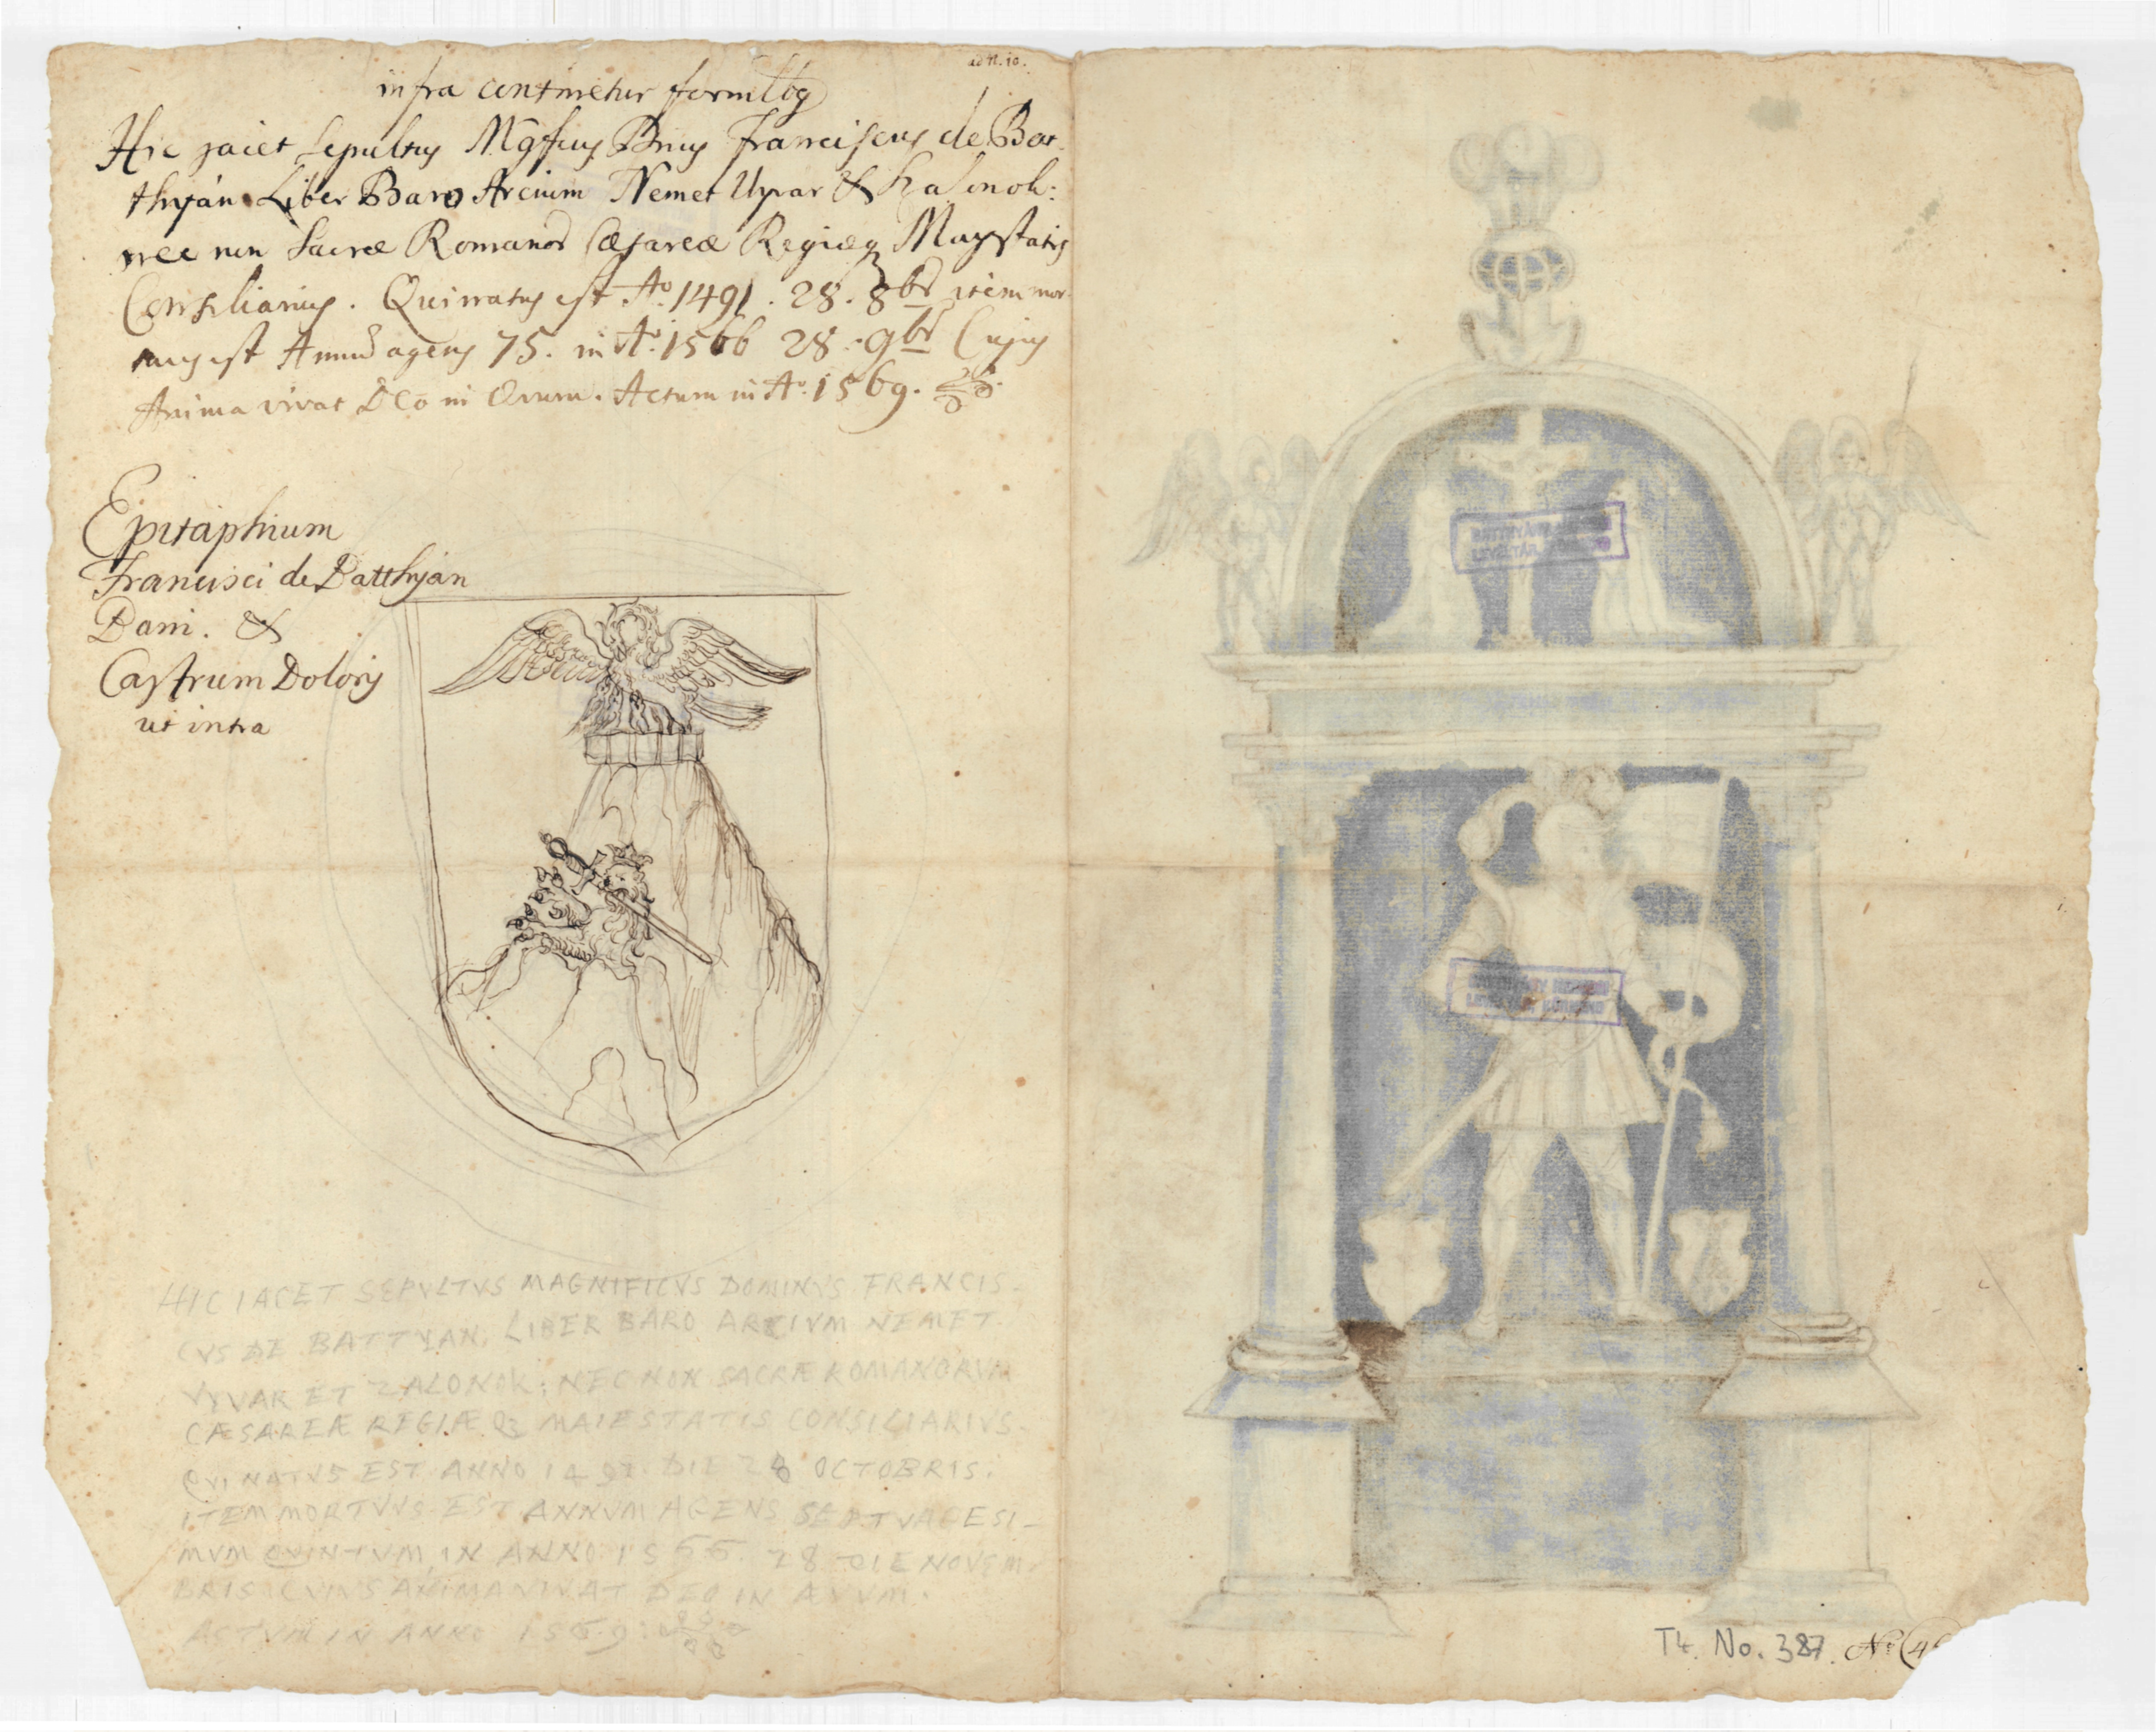 ad N. 10.
infra continetur
Hic jaicet Sepultus Mgfcus Dnus Franciscus de Bat-
thyán Liber Baro Arcium Nemet Uyvar & Szalonok:
nec non Sacræ Romanor Cæsareæ Regiæq Maystatis
Consiliarius. Qui natus est Ao. 1491. 28. 8br item mor-
tuus est Annu agens 75. in Ao. 1566 28. 9br Cujus
Anima vivat Deo in Ævum. Actum in Ao. 1569.
Epitaphium
Francisci de Batthyán
Bani. &
Castrum Doloris
ut intra
HIC IACET SEPVLTVS MAGNIFICVS DOMINVS FRANCIS-
CVS DE BATTYAN. LIBER BARO ARCIVM NEMET
VYVAR ET ZALONOK: NEC NON SACRÆ ROMANORVM
CÆSAREÆ REGIÆ Q3 MAIESTATIS CONSILIARIVS.
QVI NATVS EST ANNO 1491. DIE 28 OCTOBRIS:
ITEM MORTVVS EST ANNVM AGENS SEPTVAGESI-
MVM QVINTVM, IN ANNO. 1566. 28 DIE NOVEM-
BRIS CVIVS ANIMA VIVAT DEO IN ÆVVM.
ACTVM IN ANNO 1569:
BATTHYÁNY
LEVÉLTÁR
BATTHYÁNY
LEVÉLTÁR KÖRMEND
T4. No. 387. No